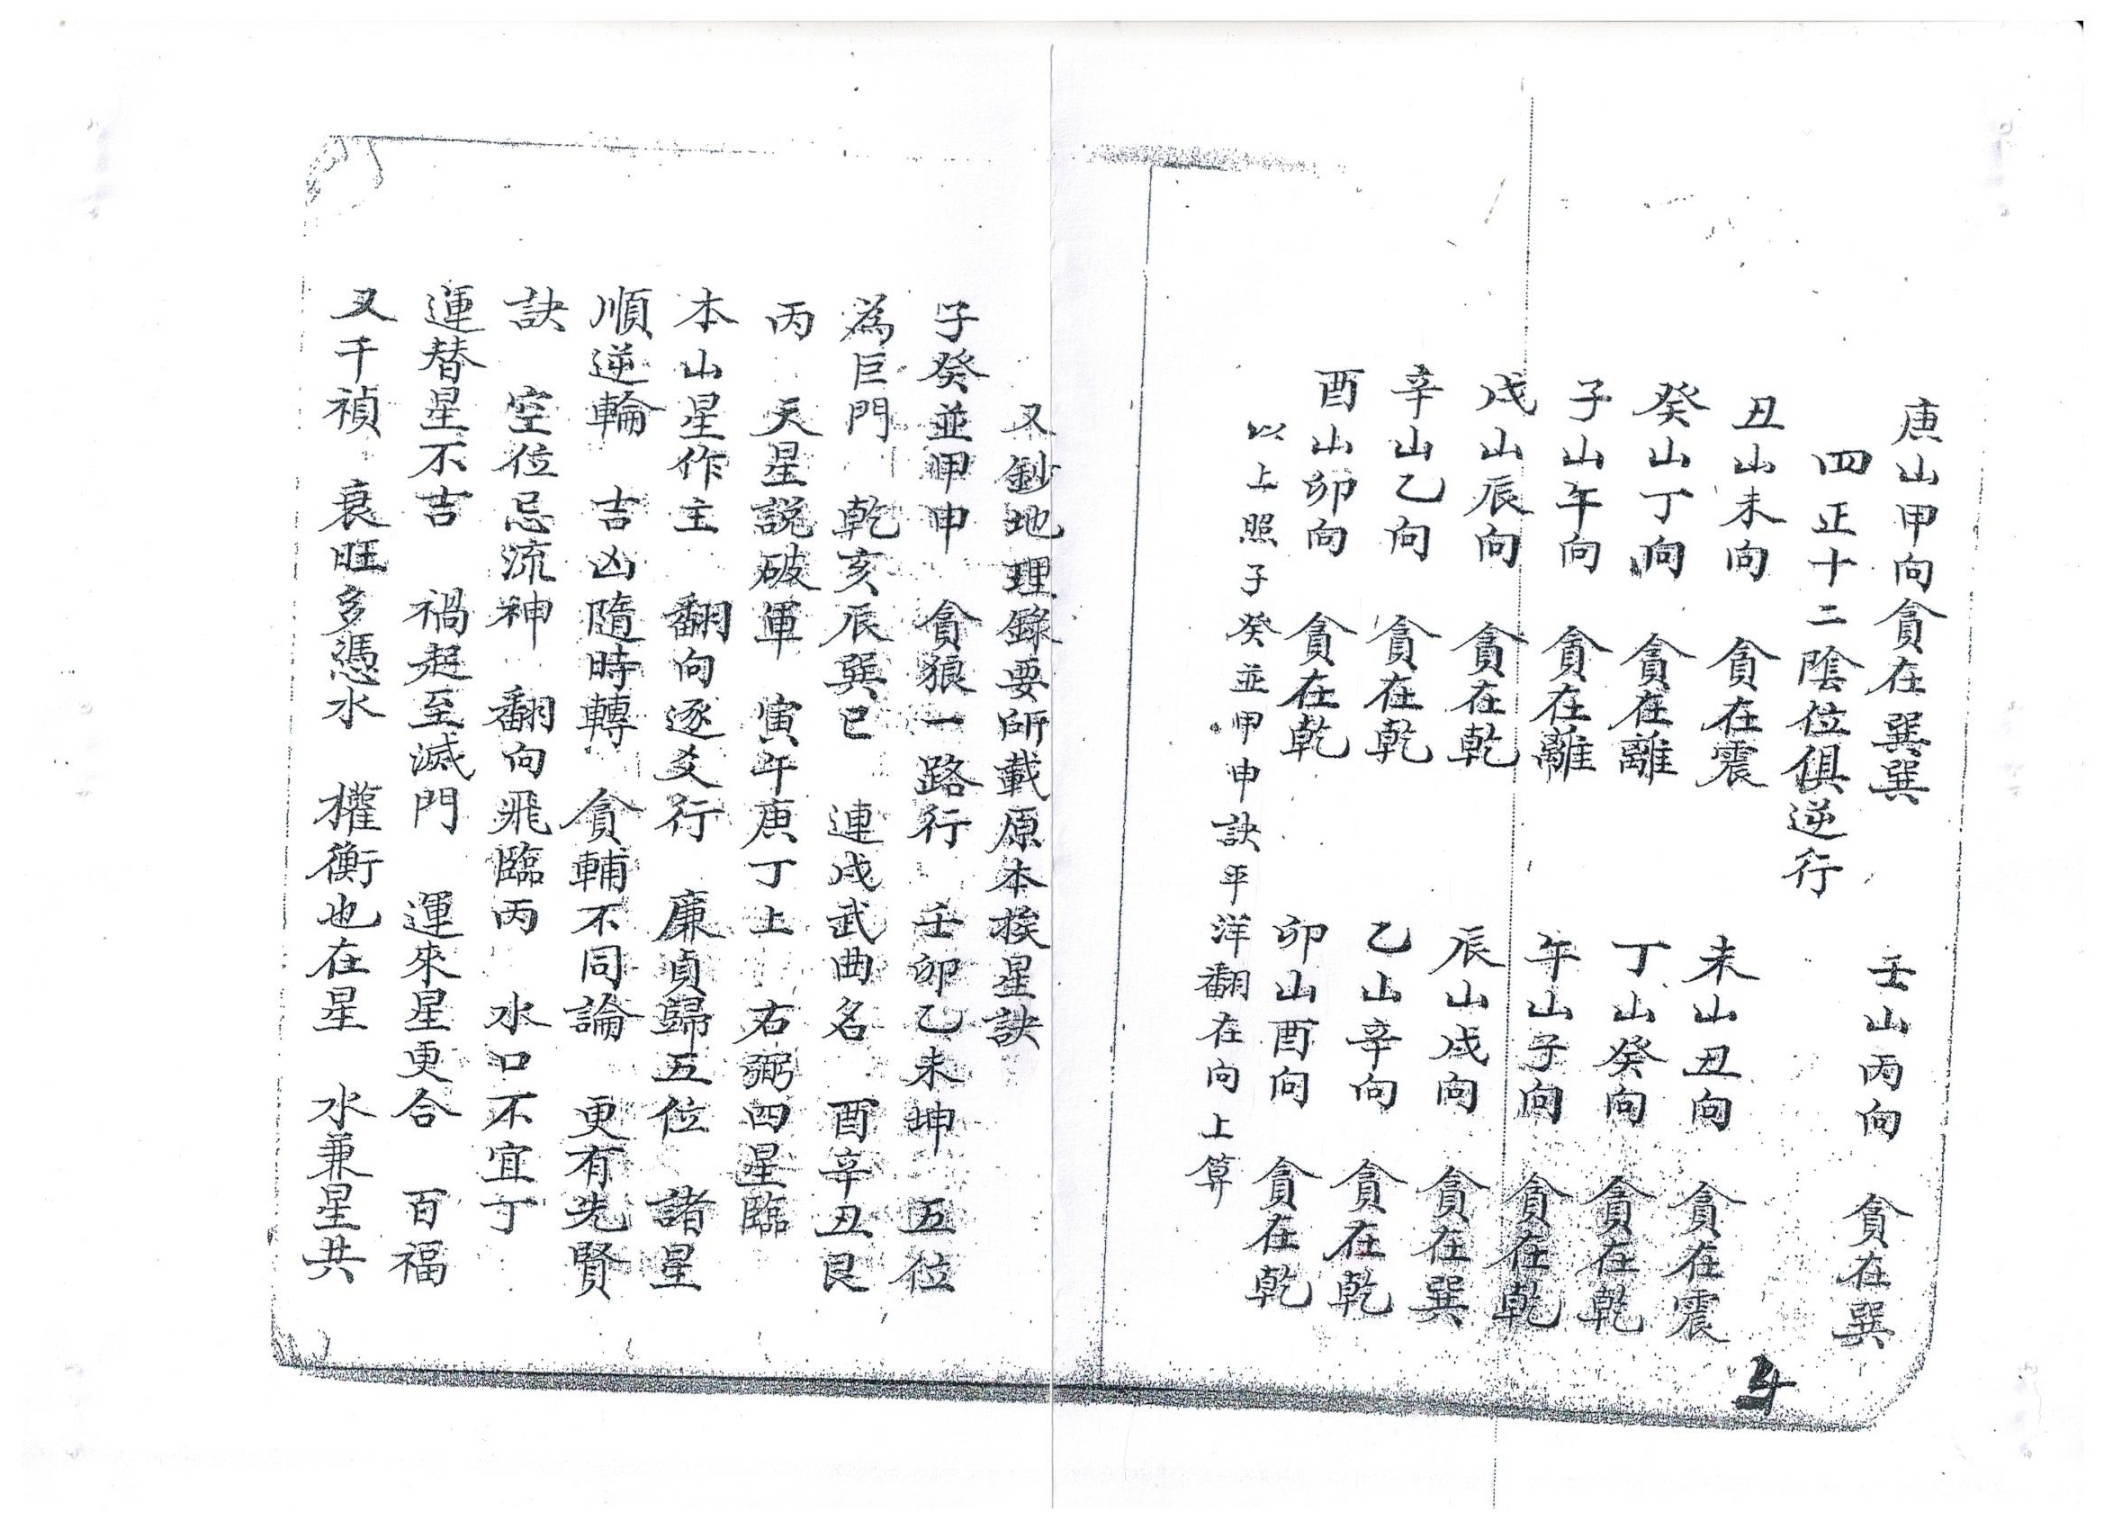 庚山甲向貪在巽巽　壬山丙向　貪在巽
四正十二陰位俱逆行
丑山未向　貪在震　未山丑向　貪在震
癸山丁向　貪在離　丁山癸向　貪在乾
子山午向　貪在離　午山子向　貪在乾
戌山辰向　貪在乾　辰山戌向　貪在巽
辛山乙向　貪在乾　乙山辛向　貪在乾
酉山卯向　貪在乾　卯山酉向　貪在乾
以上照子癸並甲申訣平洋翻在向上算
又鈔地理錄要所載原本挨星訣
子癸並甲申　貪狼一路行　壬卯乙未坤　五位
為巨門　乾亥辰巽巳　連戌武曲名　酉辛丑艮
丙　天星説破軍　寅午庚丁上　右弼四星臨
本山星作主　翻向逐爻行　廉貞歸五位　諸星
順逆輪　吉凶隨時轉　貪輔不同論　更有先賢
訣　空位忌流神　翻向飛臨丙　水口不宜丁
運替星不吉　禍起至滅門　運來星更合　百福
又千禎　衰旺多憑水　權衡也在星　水兼星共